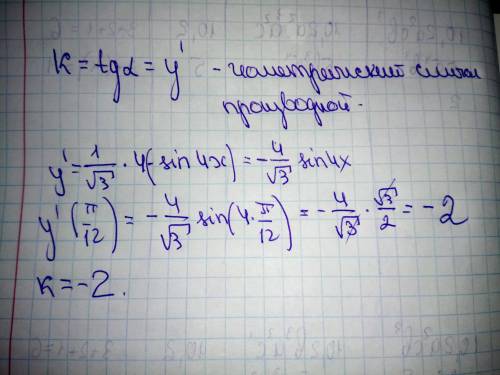 k = tgα = y' - геометрический смысл
производной.
y' = 1/√3 · 4(-sin 4x) = -4/√3 sin 4x
y'(π/12) = -4/√3 sin(4·π/12) = -4/√3 · √3/2 = -2
k = -2.